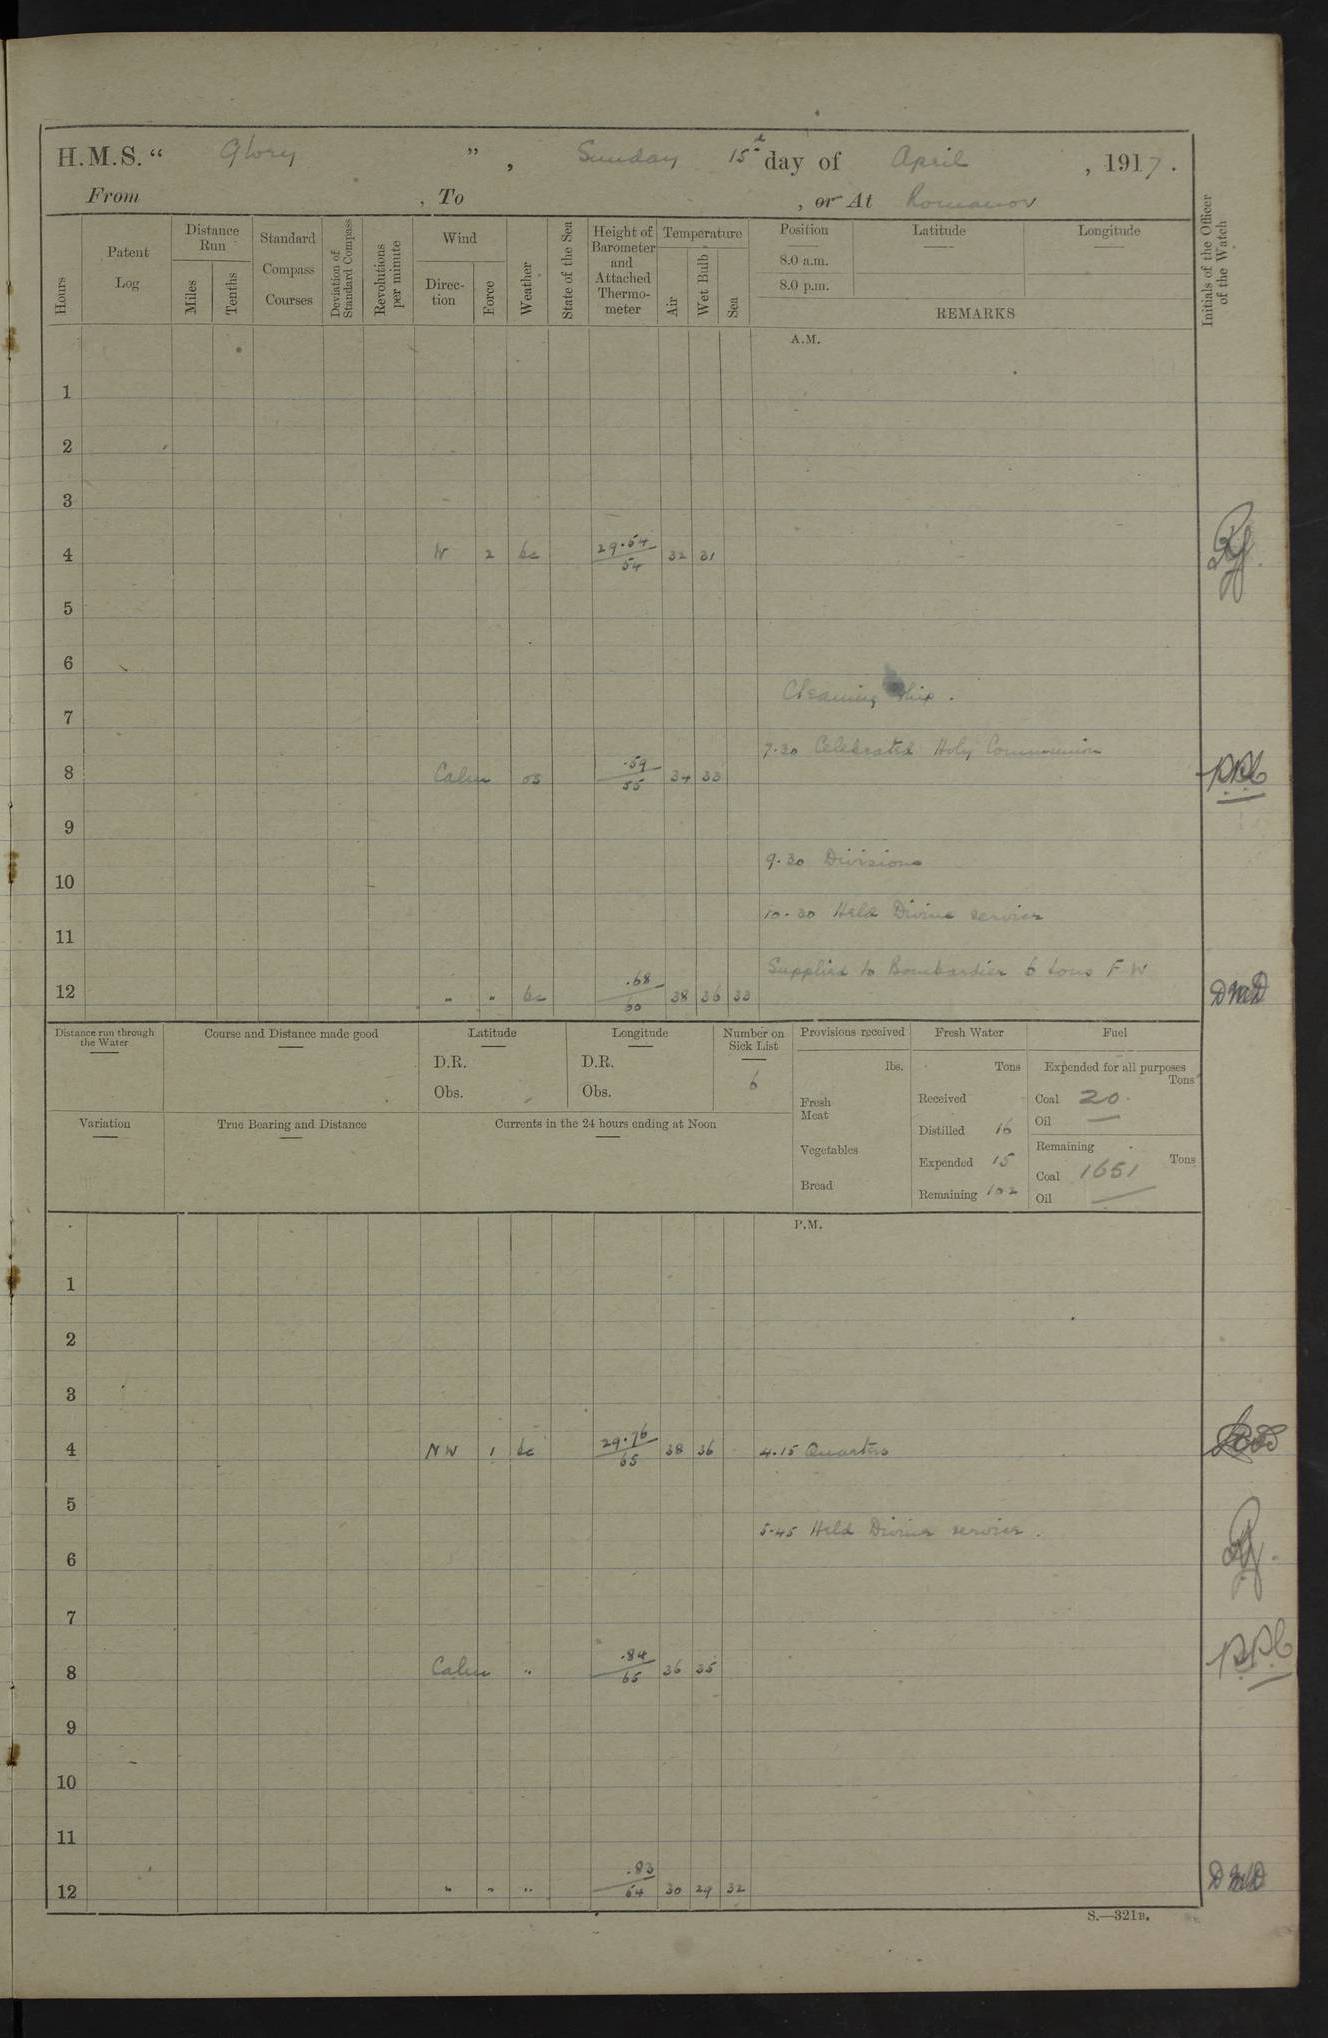 H.M.S. “ Glory ” , Sunday 15th day of April , 1917.
From , To , or At Romanov
Hours
Patent Log
Distance Run
Miles
Tenths
Standard Compass Courses
Deviation of Standard Compass
Revolutions per minute
Wind
Direc-tion
Force
Weather
State of the Sea
Height of Barometer and Attached Thermo-meter
Temperature
Air
Wet Bulb
Sea
Position
8.0 a.m.
8.0 p.m.
Latitude
Longitude
REMARKS
Initials of the Officer of the Watch
A.M.
1
2
3
4 W 2 bc 29.54/54 32 31
5
6
Cleaning ship.
7
7.30 Celebrated Holy Communion
8 Calm os .59/55 34 33
9
9.30 Divisions
10
10.30 Held Divine service
11
Supplied to Bombardier 6 tons F W
12 " " bc .68/60 38 36 33 DMD
Distance run through the Water
Course and Distance made good
Latitude
D.R.
Obs.
Longitude
D.R.
Obs.
Number on Sick List
6
Provisions received
lbs.
Fresh Meat
Vegetables
Bread
Fresh Water
Tons
Received
Distilled 16
Expended 15
Remaining 102
Fuel
Expended for all purposes
Tons
Coal 20.
Oil —
Remaining
Tons
Coal 1651
Oil —
Variation
True Bearing and Distance
Currents in the 24 hours ending at Noon
P.M.
1
2
3
4 NW 1 bc 29.76/65 38 36 4.15 Quarters
5
5.45 Held Divine service.
6
7
8 Calm " .84/65 36 35
9
10
11
12 " " " .83/64 30 29 32 DMD
S.—321B.